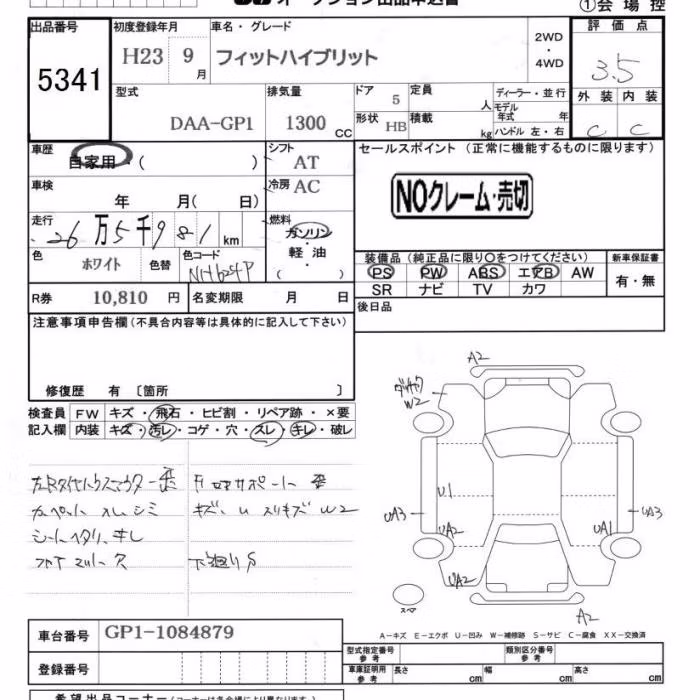 オークション出品申込書
①会場控
出品番号
5341
初度登録年月
H23 9月
車名・グレード
フィットハイブリット
2WD
・
4WD
評価点
3.5
外装 内装
C C
型式
DAA-GP1
排気量
1300 CC
ドア 5
定員 人
形状 HB
積載 kg
ディーラー・並行
モデル年式 年
ハンドル 左・右
車歴
自家用・( )
シフト AT
車検
年 月( 日)
冷房 AC
走行
26万5千981 km
燃料
ガソリン
・
軽油
( )
色 ホワイト
色替
色コード NH624P
R券 10,810 円
名変期限 月 日
セールスポイント (正常に機能するものに限ります)
NOクレーム・売切
装備品 (純正品に限り○をつけてください)
PS PW ABS エアB AW
SR ナビ TV カワ
新車保証書
有・無
後日品
注意事項申告欄(不具合内容等は具体的に記入して下さい)
修復歴 有 〔箇所 〕
検査員記入欄
FW キズ・飛石・ヒビ割・リペア跡・×要
内装 キズ・汚レ・コゲ・穴・スレ・キレ・破レ
カーペット スレ シミ
シート ヘタリ、キレ
F コアサポート
キズ、U スリキズ W2
下廻りS
A2
W2
UA3
U1
UA2
UA2
UA1
UA3
A2
スペア
A-キズ E-エクボ U-凹み W-補修跡 S-サビ C-腐食 XX-交換済
車台番号 GP1-1084879
登録番号
型式指定番号 参考
類別区分番号 参考
車庫証明用 参考
長さ cm
幅 cm
高さ cm
希望出品コーナー